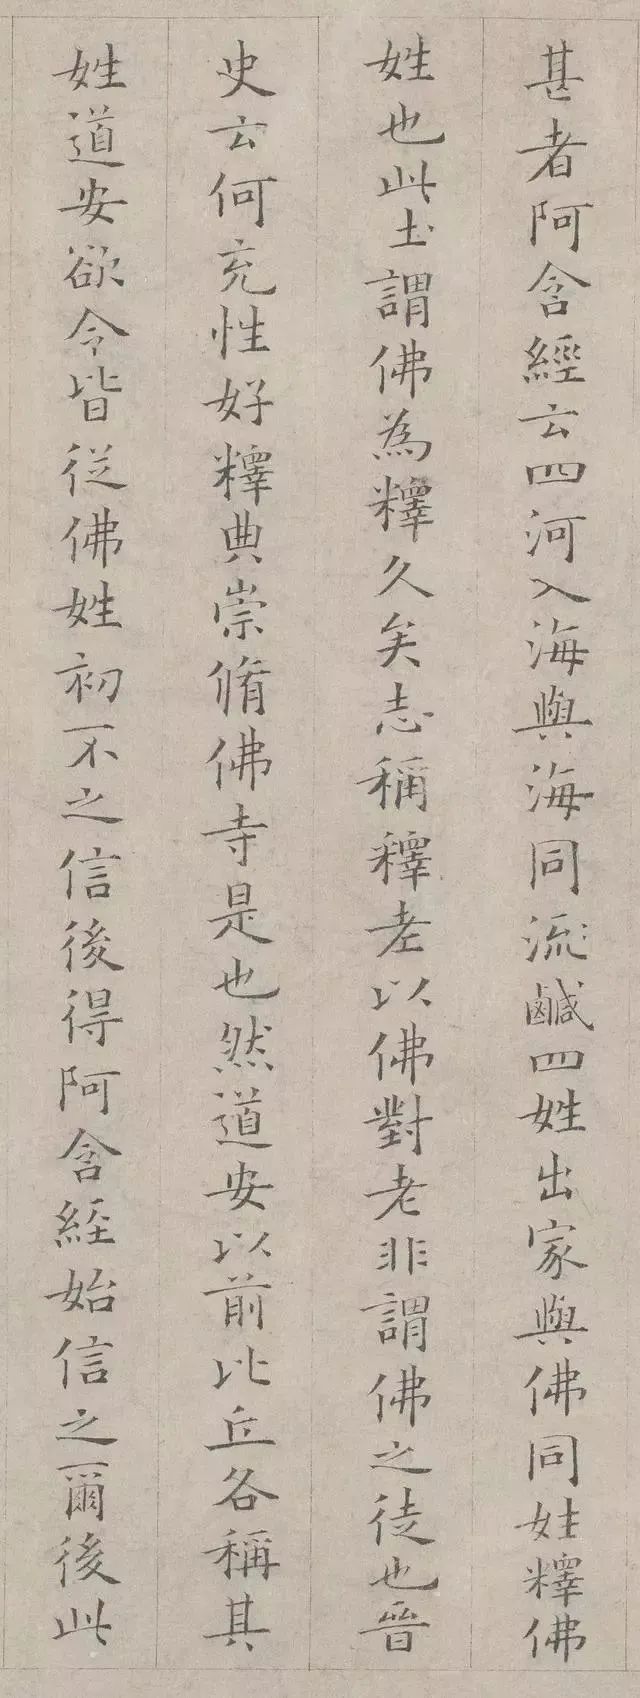 甚者阿含經云四河入海與海同流鹹四姓出家與佛同姓釋佛
姓也此土謂佛為釋久矣志稱釋老以佛對老非謂佛之徒也晉
史云何充性好釋典崇脩佛寺是也然道安以前比丘各稱其
姓道安欲令皆從佛姓初不之信後得阿含經始信之爾後此